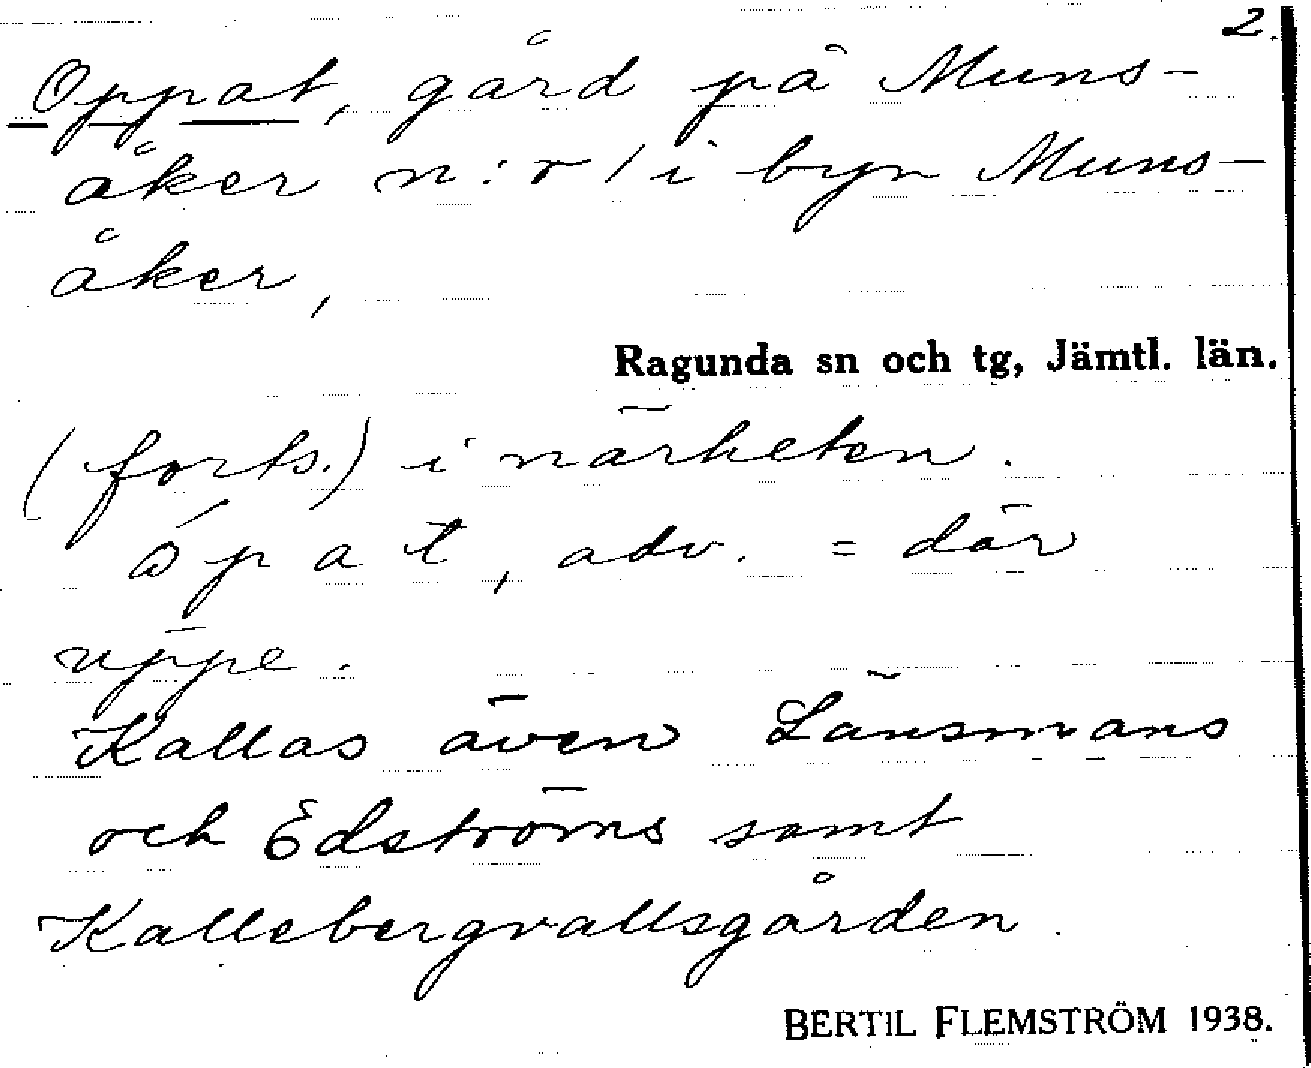 2.
Oppat, gård på Muns-
åker n:r 1 i byn Muns-
åker,
Ragunda sn och tg, Jämtl. län.
(forts.) i närheten.
ópat, adv. = där
uppe.
Kallas även Länsmans
och Edströms samt
Kallebergvallsgården.
BERTIL FLEMSTRÖM 1938.